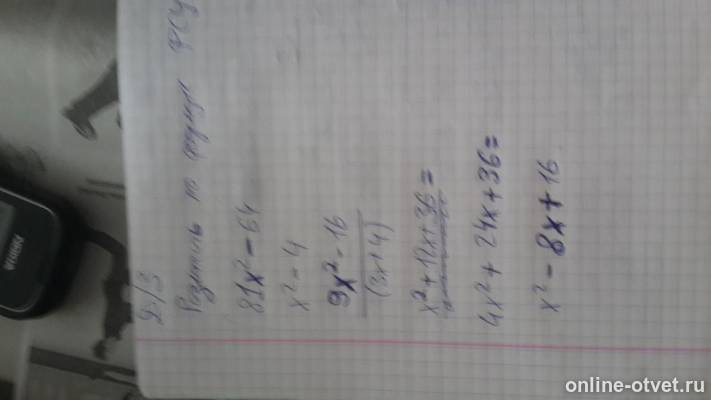 Д/З
Разделить по формуле ФСУ
81x² - 64
x² - 4
9x² - 16
(3x+4)
x² + 12x + 36 =
4x² + 24x + 36 =
x² - 8x + 16
online-otvet.ru